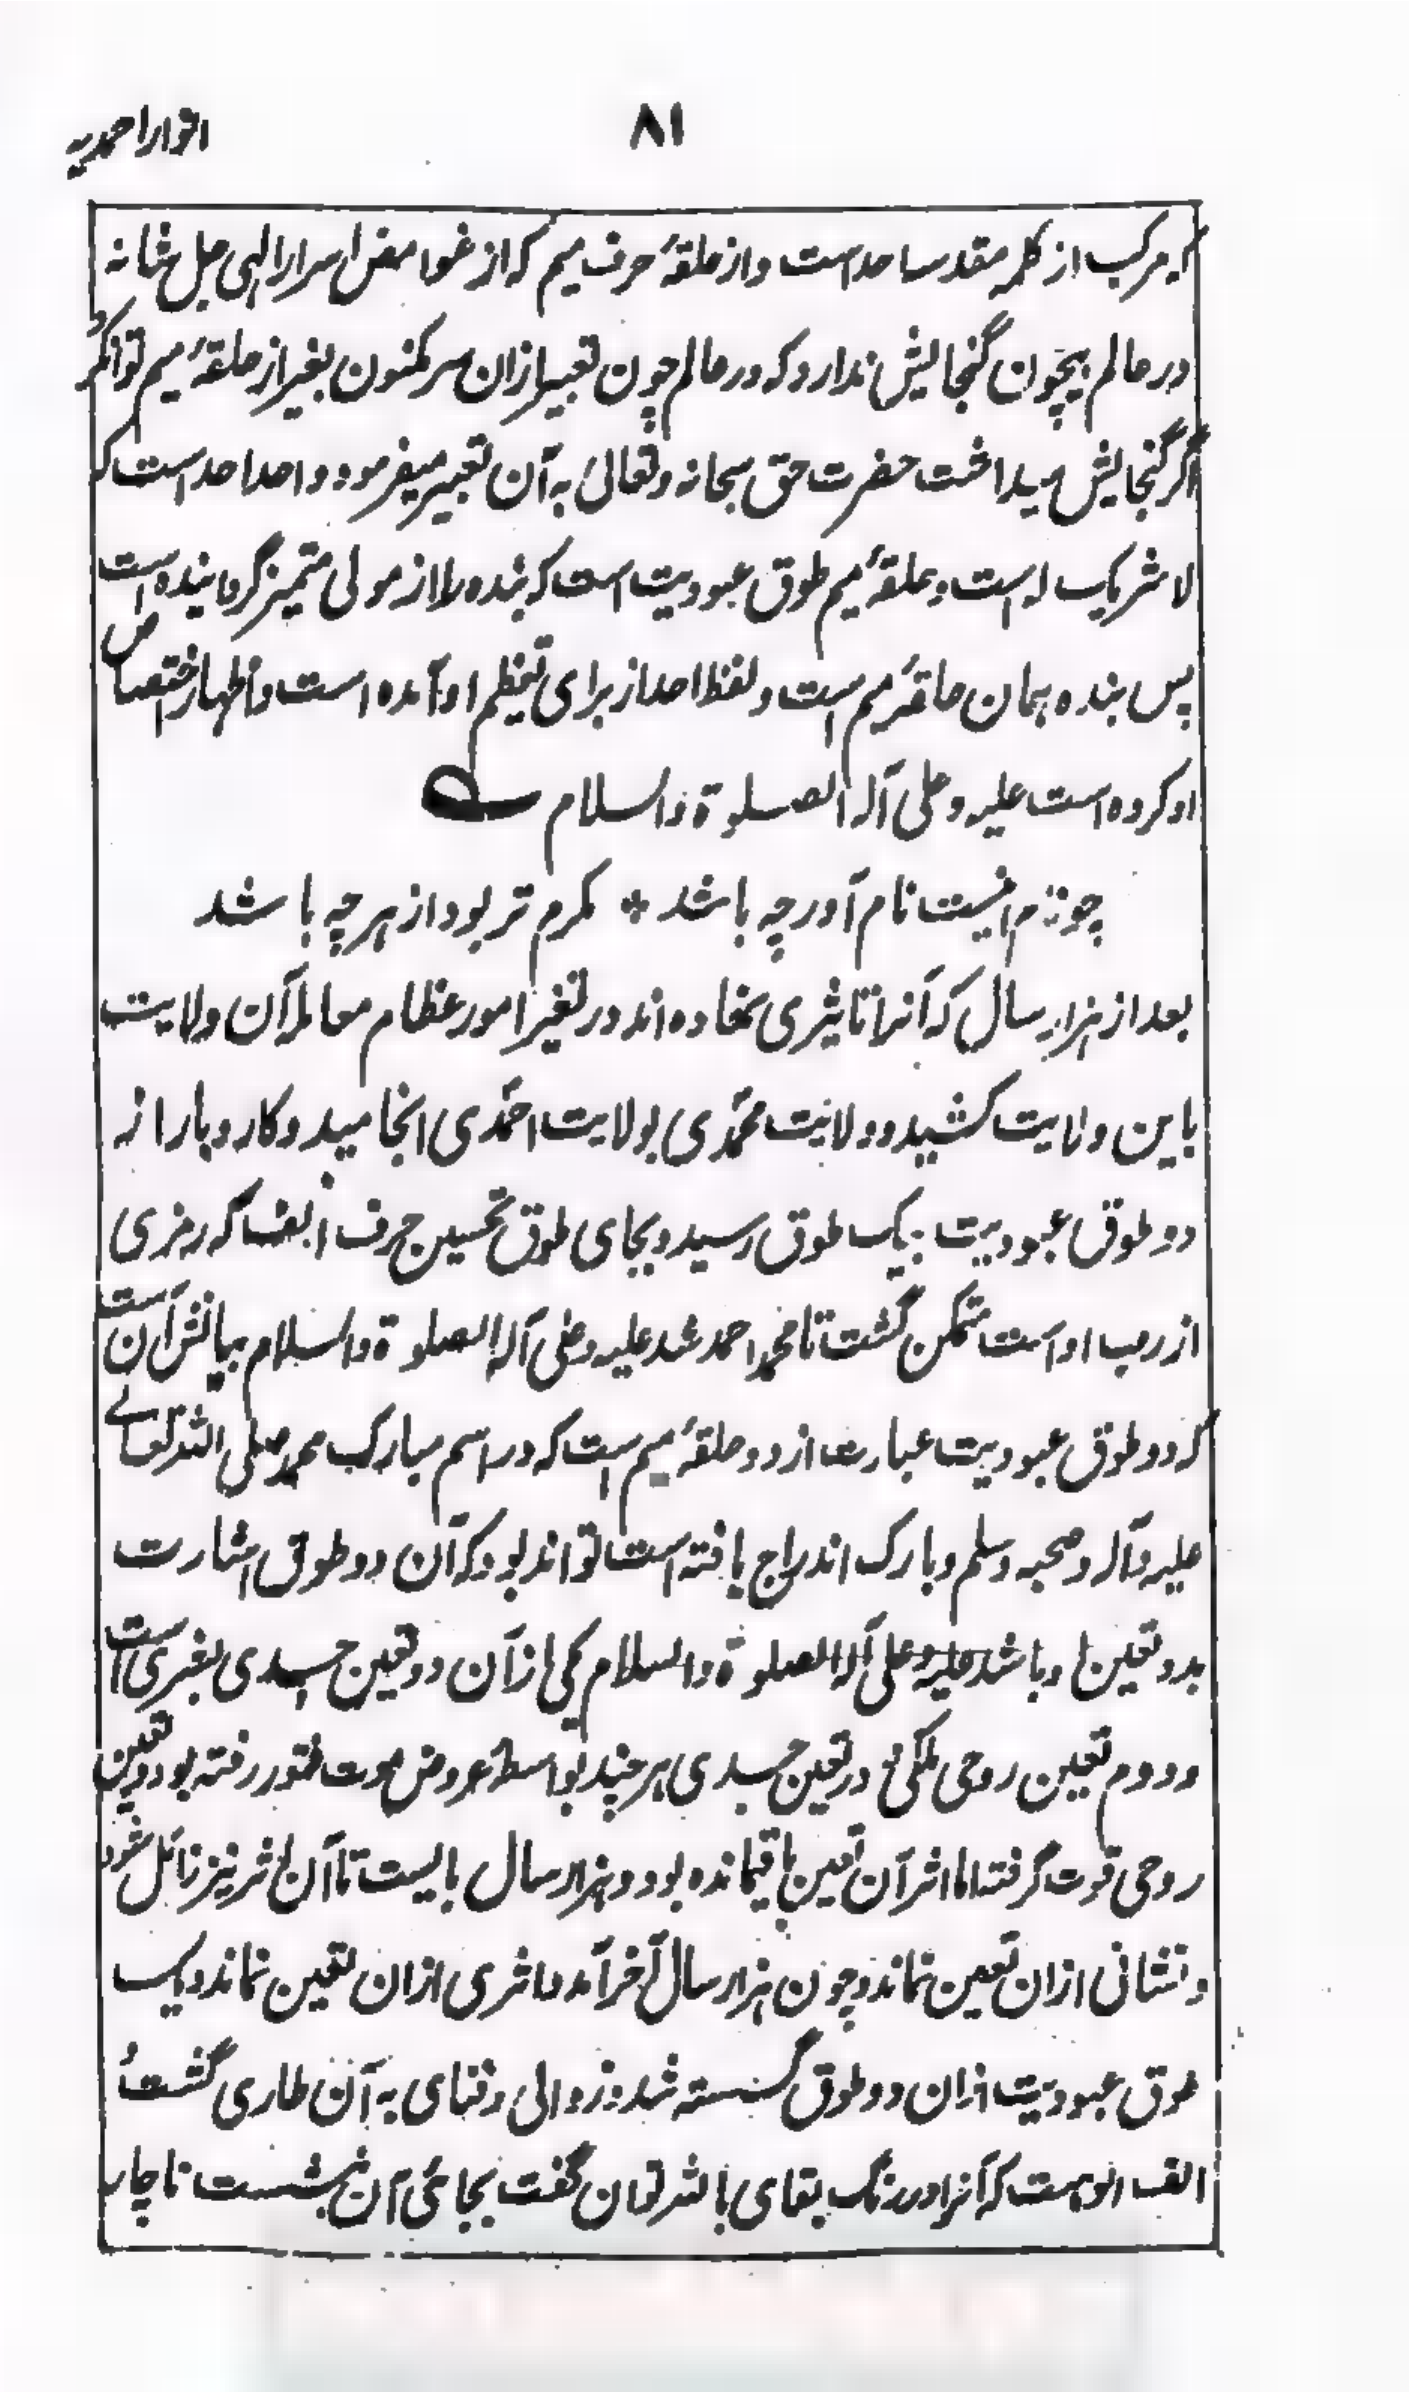 انوار احمدیہ
۸۱
که مرکب از کلمه مقدسه احد است و از حلقهٔ حرف میم که از غوامض اسرار الهی جل شانه
در عالم بیچون گنجایش ندارد که در عالم چون تعبیر ازان سر مکنون بغیر از حلقهٔ میم توان کرد
اگر گنجایش میداشت حضرت حق سبحانه و تعالیٰ به آن تعبیر میفرمود و احد احد است که
لا شریک له است و حلقهٔ میم طوق عبودیت است که بنده را از مولی متمیز گردانیده است
پس بنده همان حلقهٔ میم است و لفظ احد از برای تعظیم او آمده است و اظهار اختصاص
او کرده است علیه و علی آله الصلوة والسلام
چو نام اینست نام آور چه باشد * مکرم تر بود از هر چه باشد
بعد از هزار سال که آنرا تاثیری نهاده اند در تغیر امور عظام معامله آن ولایت
باین ولایت کشید و ولایت محمدی بولایت احمدی انجامید و کار و بار از
دو طوق عبودیت بیک طوق رسید و بجای طوق نخستین حرف الف که رمزی
از رب او است متمکن گشت تا محمد احمد شد علیه و علی آله الصلوة والسلام بیانش آن است
که دو طوق عبودیت عبارت از دو حلقهٔ میم است که در اسم مبارک محمد صلی الله تعالے
علیه وآله وصحبه وسلم وبارک اندراج یافته است تواند بود که آن دو طوق اشارت
بدو تعین او باشد علیه وعلی آله الصلوة والسلام یکی از آن دو تعین جسدی بشری است
و دوم تعین روحی ملکی و در تعین جسدی هر چند بواسطهٔ عروض موت فتور رفته بود و تعین
روحی قوت گرفته اما اثر آن تعین باقیمانده بود و هزار سال بایست تا آن اثر نیز زائل شود
و نشانی ازان تعین نماند و چون هزار سال آخر آمد و اثری ازان تعین نماند و یک
طوق عبودیت ازان دو طوق گسسته شد و زوالی و فنای به آن طاری گشت و
الف الوهیت که آنرا در رنگ بقای بالله توان گفت بجائی آن بنشست ناچار